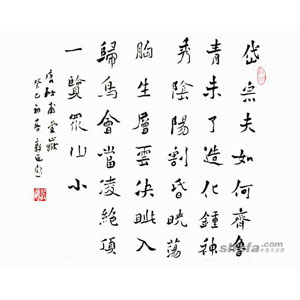 岱宗夫如何齊魯
青未了造化鍾神
秀陰陽割昏曉蕩
胸生層雲決眦入
歸鳥會當凌絕頂
一覽眾山小
唐杜甫望嶽
癸巳初春